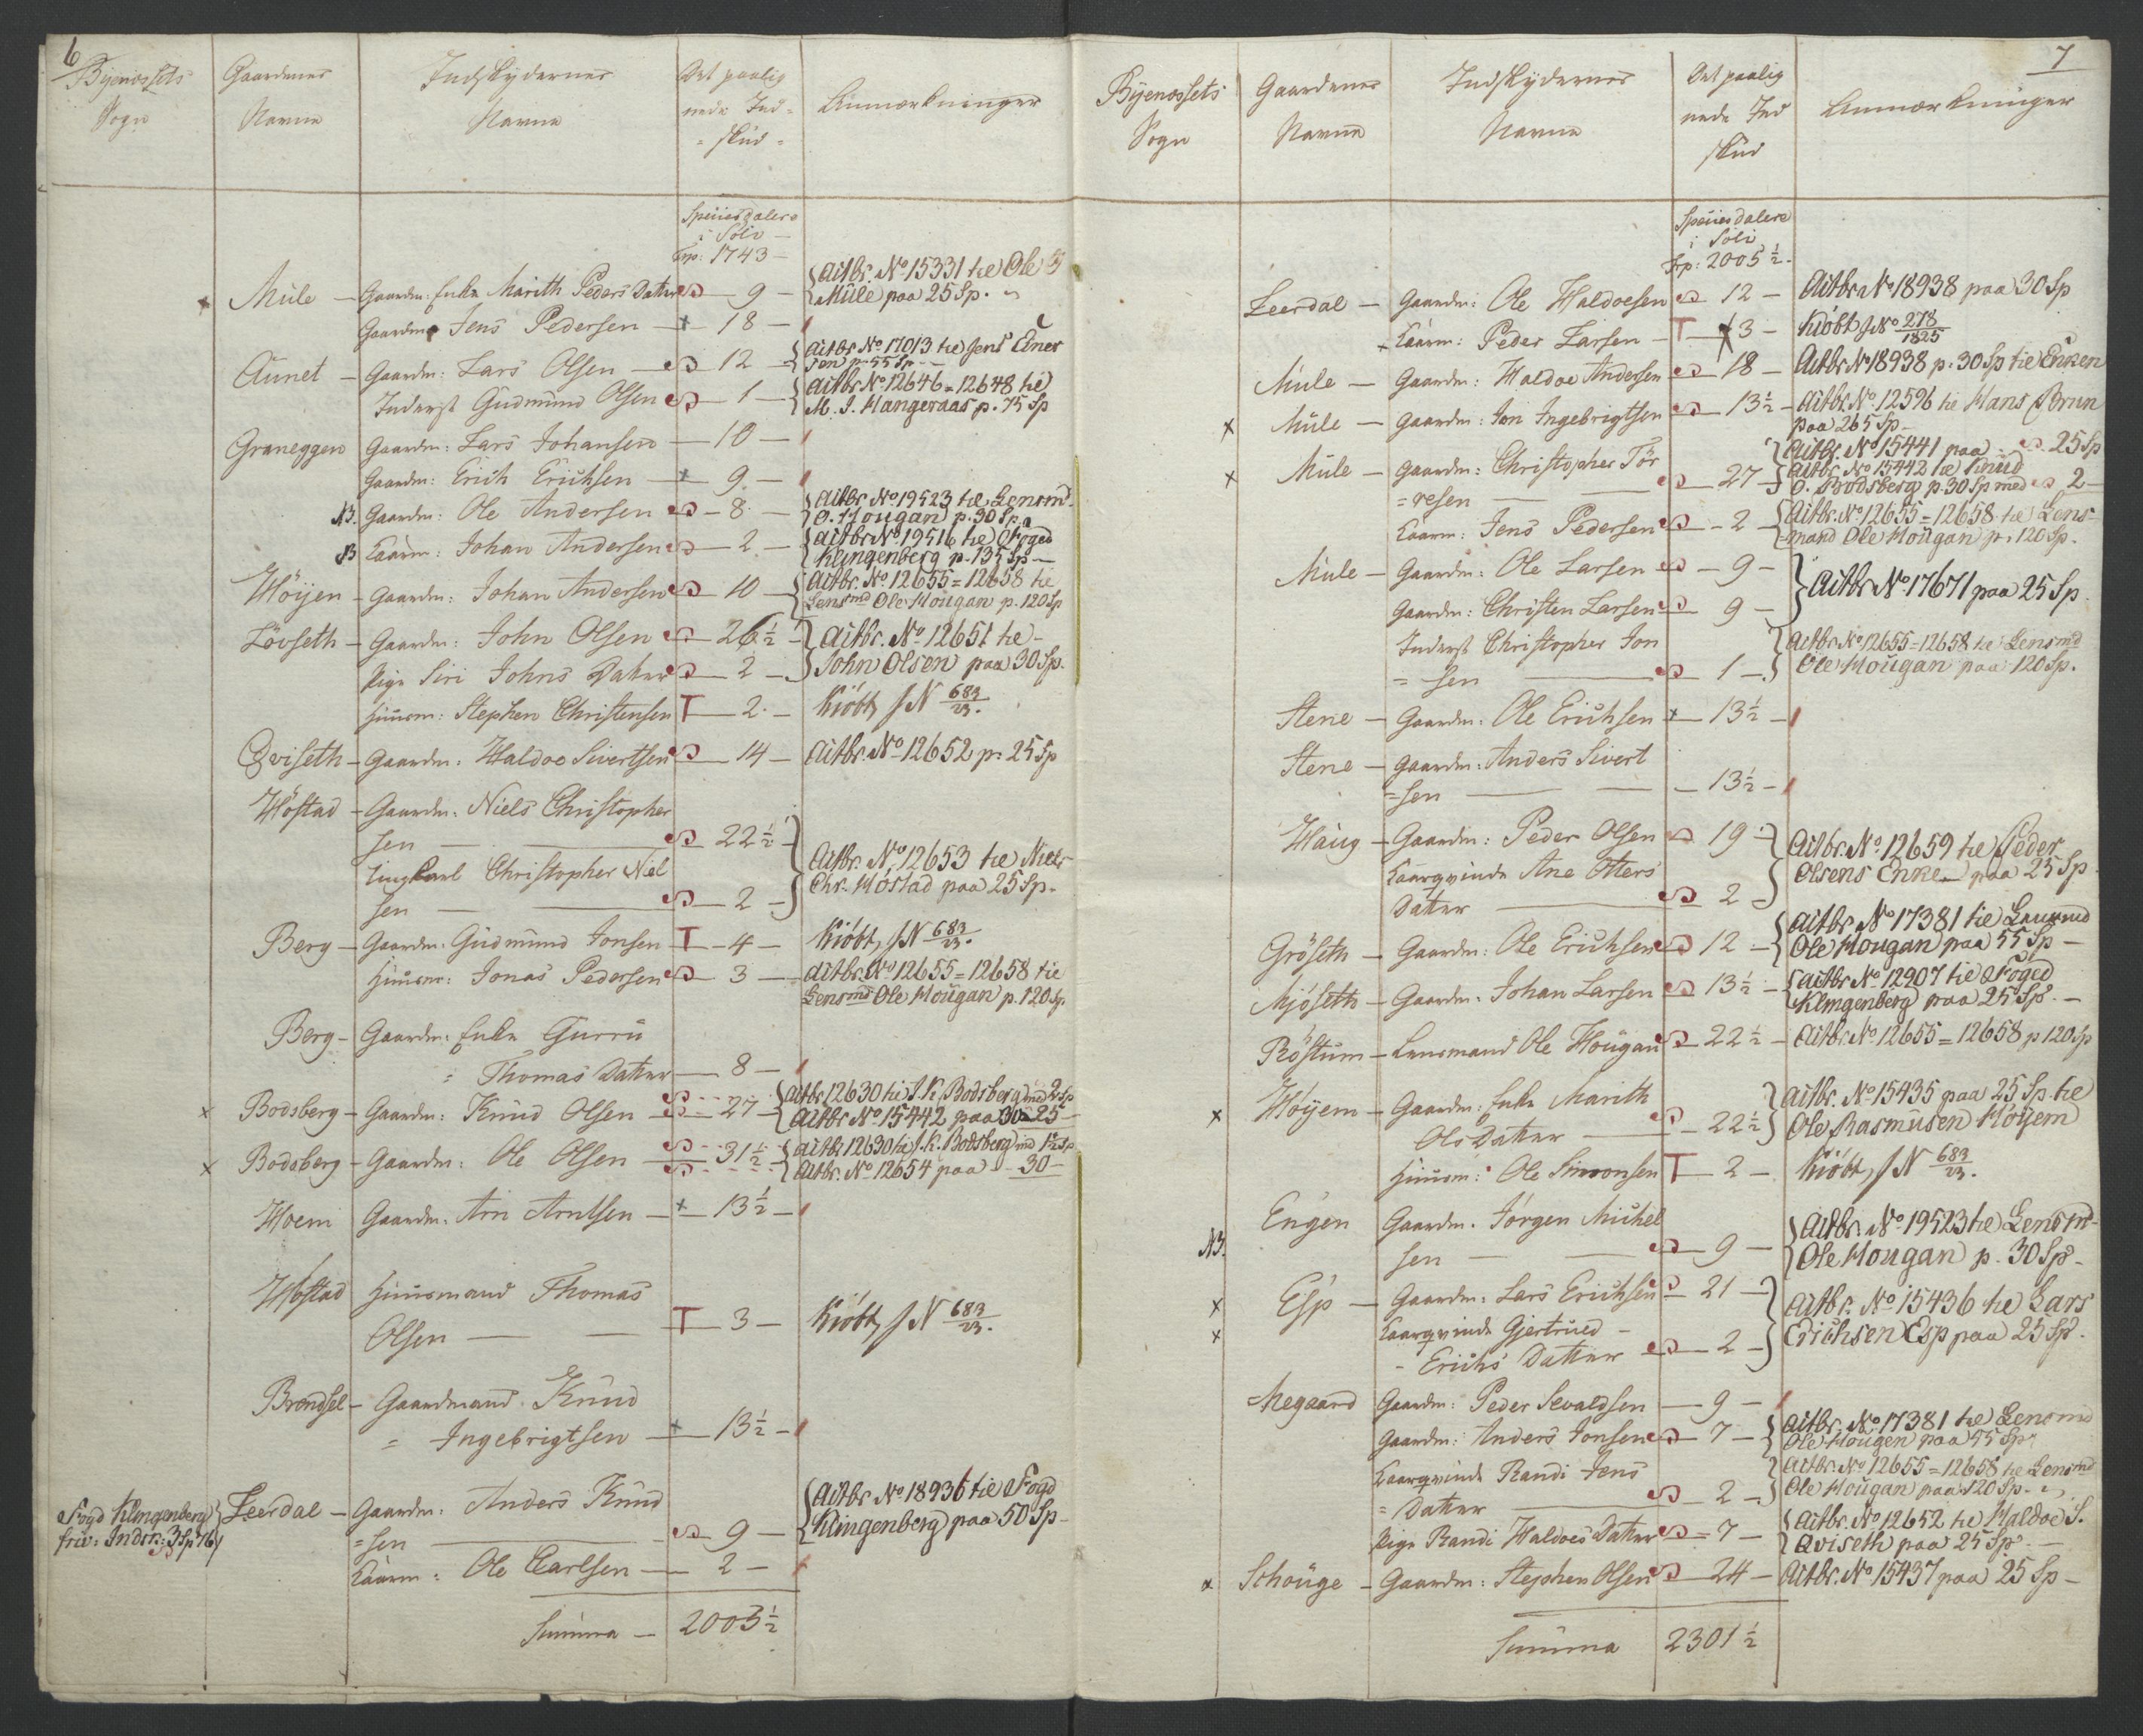 6
Byenæssets Sogn | Gaardenes Navne | Indskydernes Navne | Det paalignede Ind=skud | Anmærkninger
Speciesdalere
i Sølv
Trp: 1743 —
x Mule — Gaardm: Enke Marith Peders Datter — 9 — Actbr. No 15331 til Ole
Mule paa 25 Sp.
Gaardm Jens Pedersen — x 18 —
Aunet — Gaardm: Lars Olsen — 12 — Actbr No 17013 til Jens Ener
sen p. 55 Sp
Inderst Gudmund Olsen — 1 — Actbr No 12646=12648 til
M. J. Hangeraas p. 75 Sp
Graneggen Gaardm: Lars Johansen — 10 —
Gaardm: Erich Erichsen — x 9 —
NB. Gaardm: Ole Andersen — 8 — Actbr No 19523 til Lensmd
O. Hougan p. 30 Sp.
NB Kaarm: Johan Andersen — 2 — Actbr No 19516 til Foged
Klingenberg p. 135 Sp —
Höyen — Gaardm: Johan Andersen — 10 — Actbr. No 12655=12658 til
Lensmd Ole Hougan p. 120 Sp
Lövseth — Gaardm: John Olsen — 26½ — Actbr. No 12651 til
Pige Siri Johns Datter — 2 — John Olsen paa 30 Sp.
Huusm: Stephen Christensen T — 2 — Kiöbt, J N 683/23.
Qviseth — Gaardm: Haldoe Sivertsen — 14 — Actbr. No 12652 p. 25 Sp
Höstad — Gaardm: Niels Christopher
sen — 22½ — Actbr. No 12653 til Niels
Ungkarl Christopher Niel Chr. Höstad paa 25 Sp.
sen — 2 —
Berg — Gaardm: Gudmund Jonsen T — 4 — Kiöbt, J N 683/23.
Huusm: Jonas Pedersen — 3 — Actbr. No 12655=12658 til
Lensmd Ole Hougan p. 120 Sp.
Berg — Gaardm: Enke Gurru
= Thomas Datter — 8 —
x Bodsberg — Gaardm: Knud Olsen — 27 — Actbr 12630 til J. K. Bodsberg med 2 Sp
Actbr No 15442 paa 30 25 —
x Bodsberg — Gaardm: Ole Olsen — 31½ — Actbr 12630 til J. K. Bodsberg md 1½ Sp
Actbr. No 12654 paa — 30 —
Hoem Gaardm: Arn Arntsen — x 13½ —
Höstad Huusmand Thomas
Olsen — T — 3 — Kiöbt, J N 683/23.
Brendsel — Gaardmand Knud
= Ingebrigtsen — x 13½ —
Fogd Klingenberg
friv: Indsk: 3 Sp 16
Leerdal — Gaardm: Anders Knud
=sen — 9 — Actbr No 18936 til Fogd
Klingenberg paa 50 Sp —
Kaarm: Ole Carlsen — 2 —
Summa — 2003½
7
Byenæssets Sogn | Gaardenes Navne | Indskydernes Navne | Det paalignede Indskud | Anmærkninger
Speciesdalere
i Sölv
Trp: 2005½.
Leerdal — Gaardm: Ole Haldoesen — 12 — Actbr No 18938 paa 30 Sp
x Kaarm: Peder Larsen — T — 3 — Kiöbt J No 278/1825
Mule — Gaardm: Haldoe Andersen — 18 — Actbr No 18938 p. 30 Sp til Enken
x Mule — Gaardm: Jon Ingebrigtsen — 13½ — Actbr. No 12596 til Hans Brun
paa 265 Sp —
x Mule — Gaardm: Christopher Tör
=resen — 27 — Actbr. No 15441 paa — 25 Sp
Actbr. No 15442 til Knud
O. Bodsberg p. 30 Sp med 2 —
Kaarm: Jens Pedersen — 2 — Actbr. No 12655=12658 til Lens=
mand Ole Hougan p. 120 Sp.
Mule — Gaardm: Ole Larsen — 9 —
Gaardm: Christen Larsen — 9 — Actbr No 17671 paa 25 Sp.
Inderst Christopher Jon
= sen — 1 — Actbr. No 12655=12658 til Lensmd
Ole Hougan paa 120 Sp.
Stene — Gaardm: Ole Erichsen x — 13½ —
Stene — Gaardm: Anders Sivert
=sen — 13½ —
Haug — Gaardm: Peder Olsen — 19 — Actbr. No 12659 til Peder
Kaarqvinde Ane Otters Olsens Enke — paa 25 Sp
Datter — 2 —
Gröseth — Gaardm: Ole Erichsen — 12 — Actbr No 17381 til Lensmd
Ole Hougan paa 55 Sp —
Mjöseth — Gaardm: Johan Larsen — 13½ — Actbr. No 12907 til Foged
Klingenberg paa 25 Sp. —
Röstum — Lensmand Ole Hougan — 22½ — Actbr. No 12655=12658 p 120 Sp
x Höyem — Gaardm: Enke Marith
Ols Datter — 22½ Actbr. No 15435 paa 25 Sp. til
Ole Rasmusen Höyem
Huusm: Ole Simonsen T — 2 — Kiöbt, J N 683/23.
NB. Engen Gaardm. Jörgen Michel
sen — 9 — Actbr. No 19523 til Lensmd
Ole Hougan p. 30 Sp —
x Esp — Gaardm: Lars Erichsen — 21 — Actbr. No 15436 til Lars
x Kaarqvinde Gjertrued — Erichsen Esp paa 25 Sp.
— Erichs Datter — 2 —
Megaard Gaardm: Peder Sevaldsen — 9 —
Gaardm: Anders Jonsen — 7 — Actbr. No 17381 til Lensmd
Ole Hougen paa 55 Sp
Kaarqvinde Randi Jens
= Datter — 2 — Actbr No 12655=12658 til Lensmd
Ole Hougan paa 120 Sp.
Pige Randi Haldoes Datter = 7 — Actbr. No 12652 til Haldoe S.
Qviseth paa 25 Sp. —
x Schouge — Gaardm: Stephen Olsen — 24 — Actbr. No 15437 paa 25 Sp —
Summa 2301½